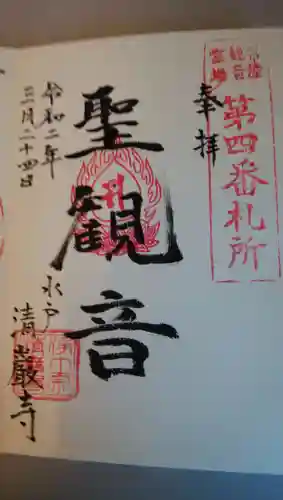 第四番札所
奉拝
聖観音
令和二年
三月二十四日
水戸
清巌寺